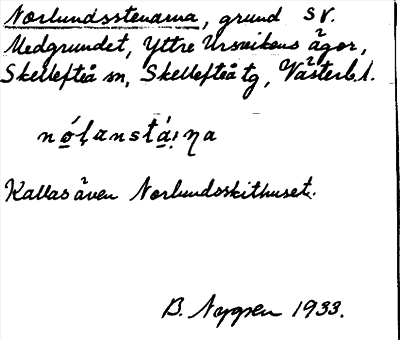 Norlundsstenarna, grund SV.
Medgrundet, Yttre Ursvikens ägor,
Skellefteå sn, Skellefteå tg, Västerb. l.
Kallas även Norlundsskithuset.
B. Nygren 1933.